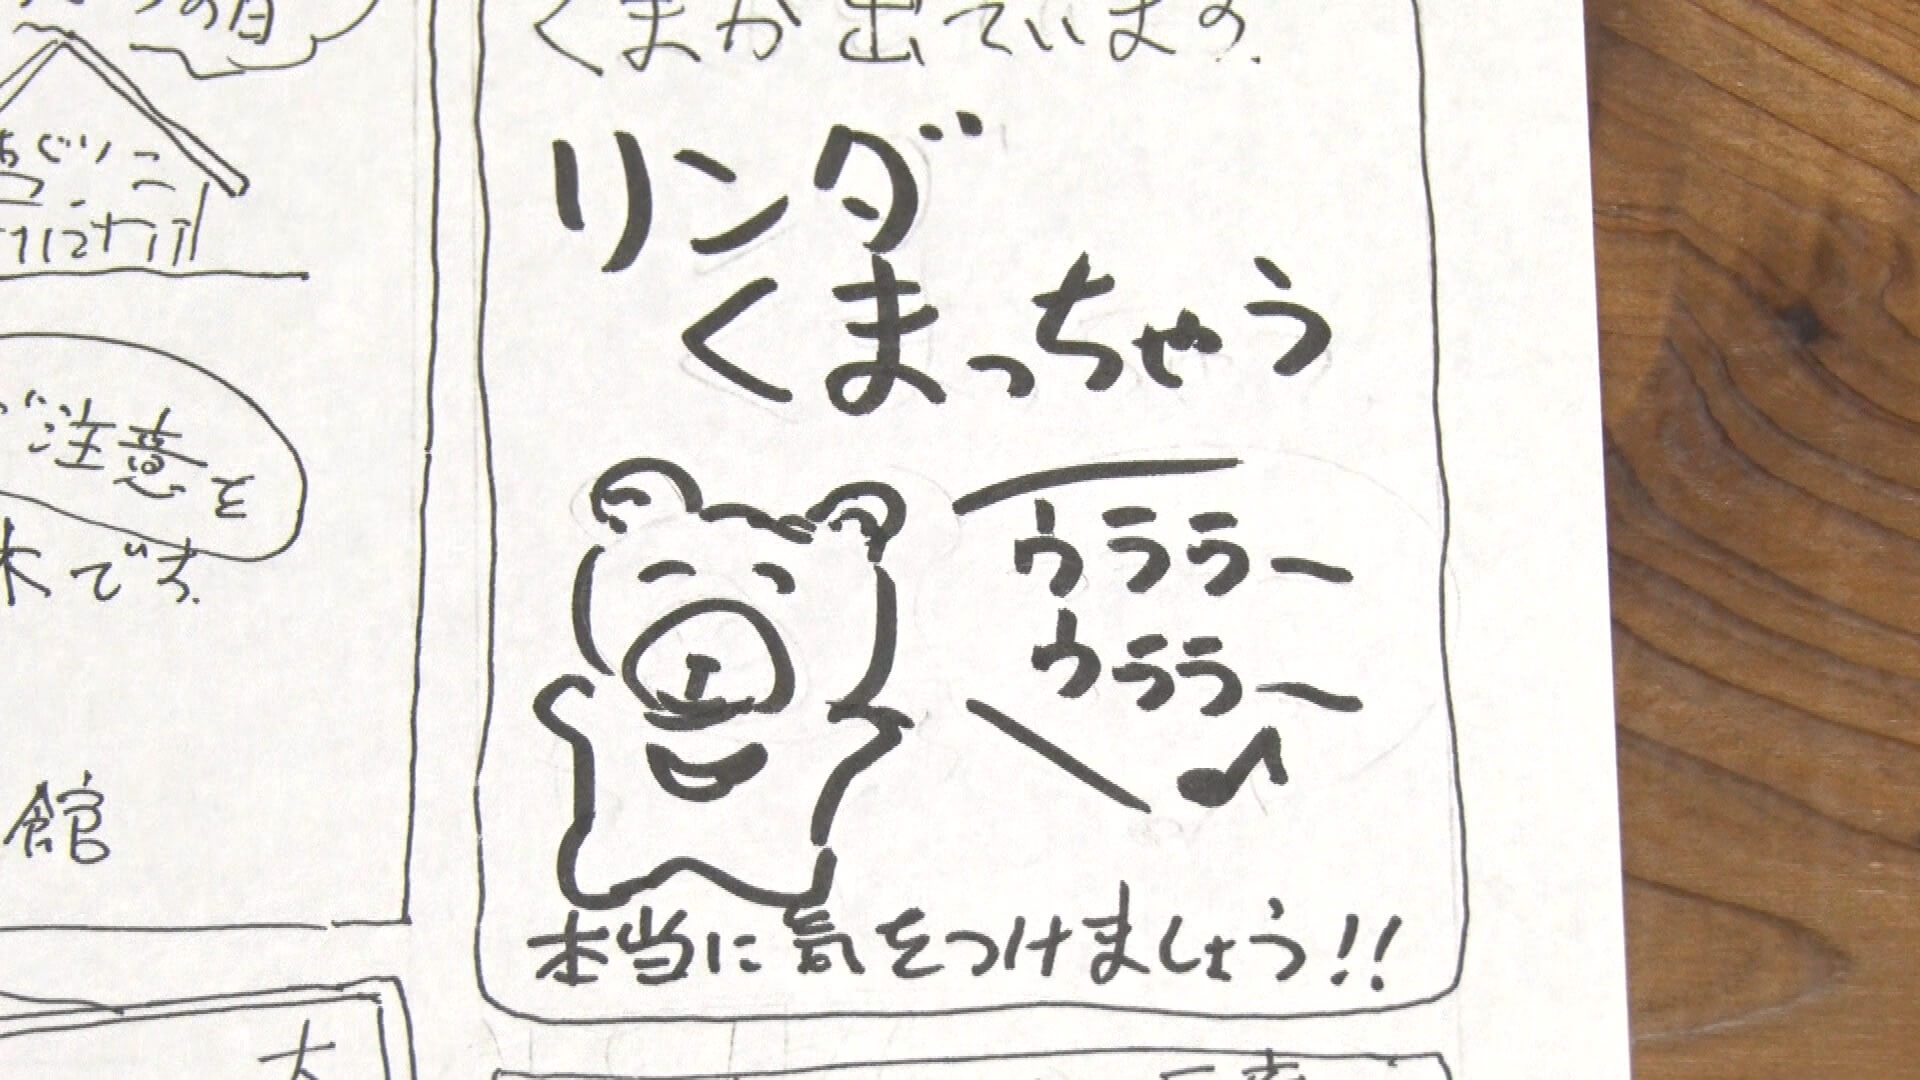 くまが出ています。
リンダ
くまっちゃう
ウララー
ウララー
本当に気をつけましょう!!
の日
注意を
です
館
大